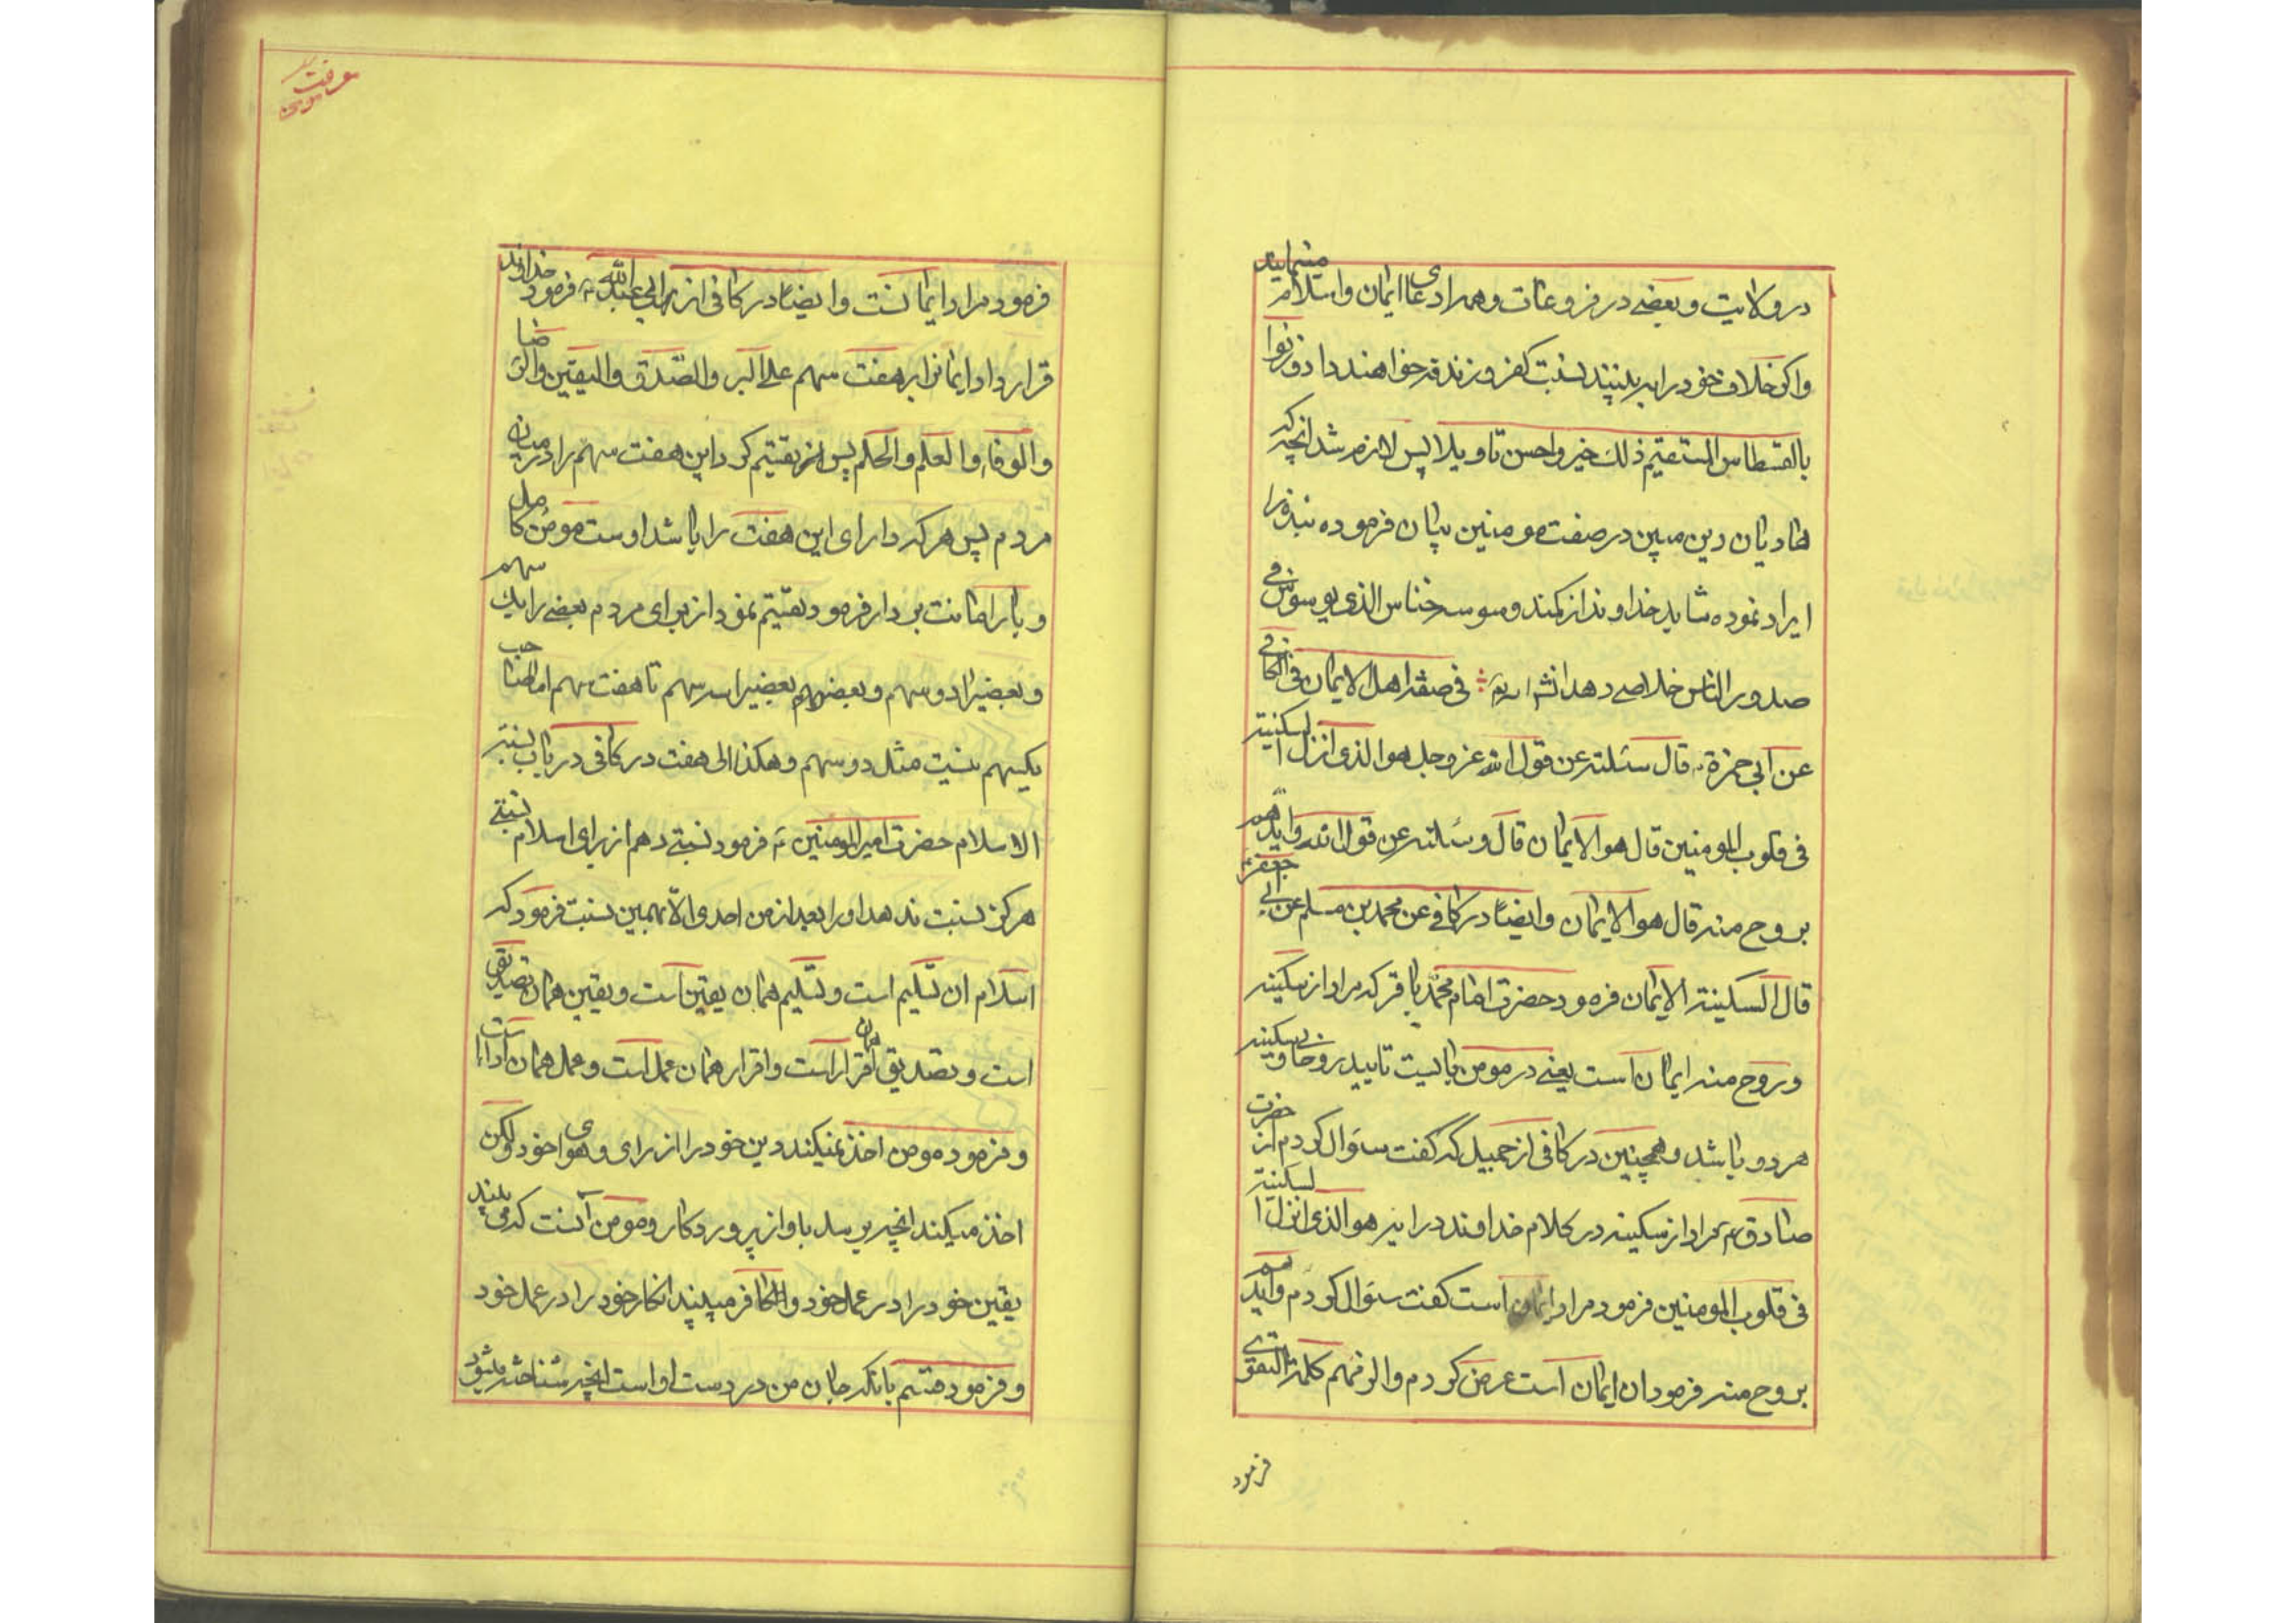 در ولایت و بعضی در فروعات و همه ادعای ایمان و اسلام مینمایند
و اکر خلاف خود را به بینند نسبت کفر و زندقه خواهند داد وزنوا
بالقسطاس المستقیم ذلک خیر و احسن تاویلا پس لازم شد انچه که
هادیان دین مبین در صفت مومنین بیان فرموده نبذی را
ایراد نموده شاید خداوند از کمند وسوسه خناس الذی یوسوس فی
صدور الناس خلاصی دهد انشاءالله فی صفة اهل الایمان فی الکافی
عن ابی حمزة قال سئلته عن قول الله عز و جل هو الذی انزل السکینة
فی قلوب المومنین قال هو الایمان قال و سئلته عن قول الله و ایدهم
بروح منه قال هو الایمان وایضا در کافی عن محمد بن مسلم عن ابی جعفر
قال السکینة الایمان فرمود حضرت امام محمد باقر که مراد از سکینه
و روح منه ایمان است یعنی در مومن بایست تایید روحانی و سکینه
هر دو باشد و همچنین در کافی از جمیل که کفت سؤال کردم از حضرت
صادق مراد از سکینه در کلام خداوند در ایه هو الذی انزل السکینة
فی قلوب المومنین فرمود مراد ایمان است کفت سؤال کردم و ایدهم
بروح منه فرمود ان ایمان است عرض کردم والزمهم کلمة التقوی
فرمود
معرفت مومن
فرمود مراد ایمانست وایضا در کافی از ابی عبدالله فرمود خداوند
قرار داد ایمانرا بر هفت سهم علی البر والصدق والیقین والرضا
والوفاء والعلم والحلم پس تقسیم کرد این هفت سهم را در میان
مردم پس هر که دارای این هفت را باشد اوست مومن کامل
و بار امانت بردار فرمود تقسیم نمود از برای مردم بعضی را یک سهم
و بعضیرا دو سهم و بعضیرا سه سهم تا هفت سهم اما صاحب
یکسهم نیست مثل دو سهم و هکذا الی هفت در کافی در باب نسبة
الاسلام حضرت امیرالمومنین فرمود نسبتی دهم از برای اسلام نسبتی
هرکز نسبت ندهد او را بعد از من احدی الا بهمین نسبت فرمود که
اسلام ان تسلیم است و تسلیم همان یقین است و یقین همان تصدیق
است و تصدیق همان اقرار است و اقرار همان عمل است و عمل همان ادا است
و فرمود مومن اخذ نمیکند دین خود را از رای و هوای خود ولکن
اخذ میکند انچه برسد باو از پروردکار و مومن آنست که می بیند
یقین خود را در عمل خود و کافر میبیند انکار خود را در عمل خود
و فرمود قسم بانکه جان من در دست او است انچه شناخته میشود